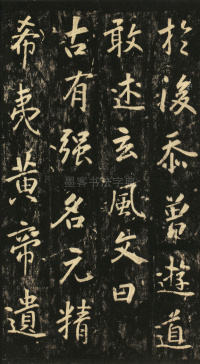 於後忝曾遊道
敢述玄風文曰
古有强名元精
希夷黄帝遺
墨客书法字典